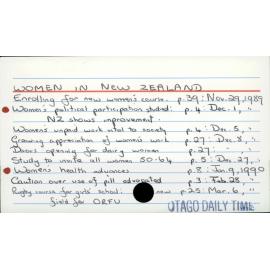 WOMEN IN NEW ZEALAND
Enrolling for new women's course. p.39: Nov. 29, 1989
Women's political participation studied: p.4: Dec. 1, "
NZ shows improvement.
Womens unpaid work vital to society p.4: Dec. 5, "
Growing appreciation of women's work p.27: Dec. 8, "
Doors opening for dairy women p.27: " "
Study to involve all women 50-64 p.5: Dec. 27, "
Womens health advances p.8: Jan. 9, 1990
Caution over use of pill advocated p.3 Feb. 28, "
Rugby course for girls' school: new p.25: Mar. 6, "
field for ORFU
OTAGO DAILY TIMES